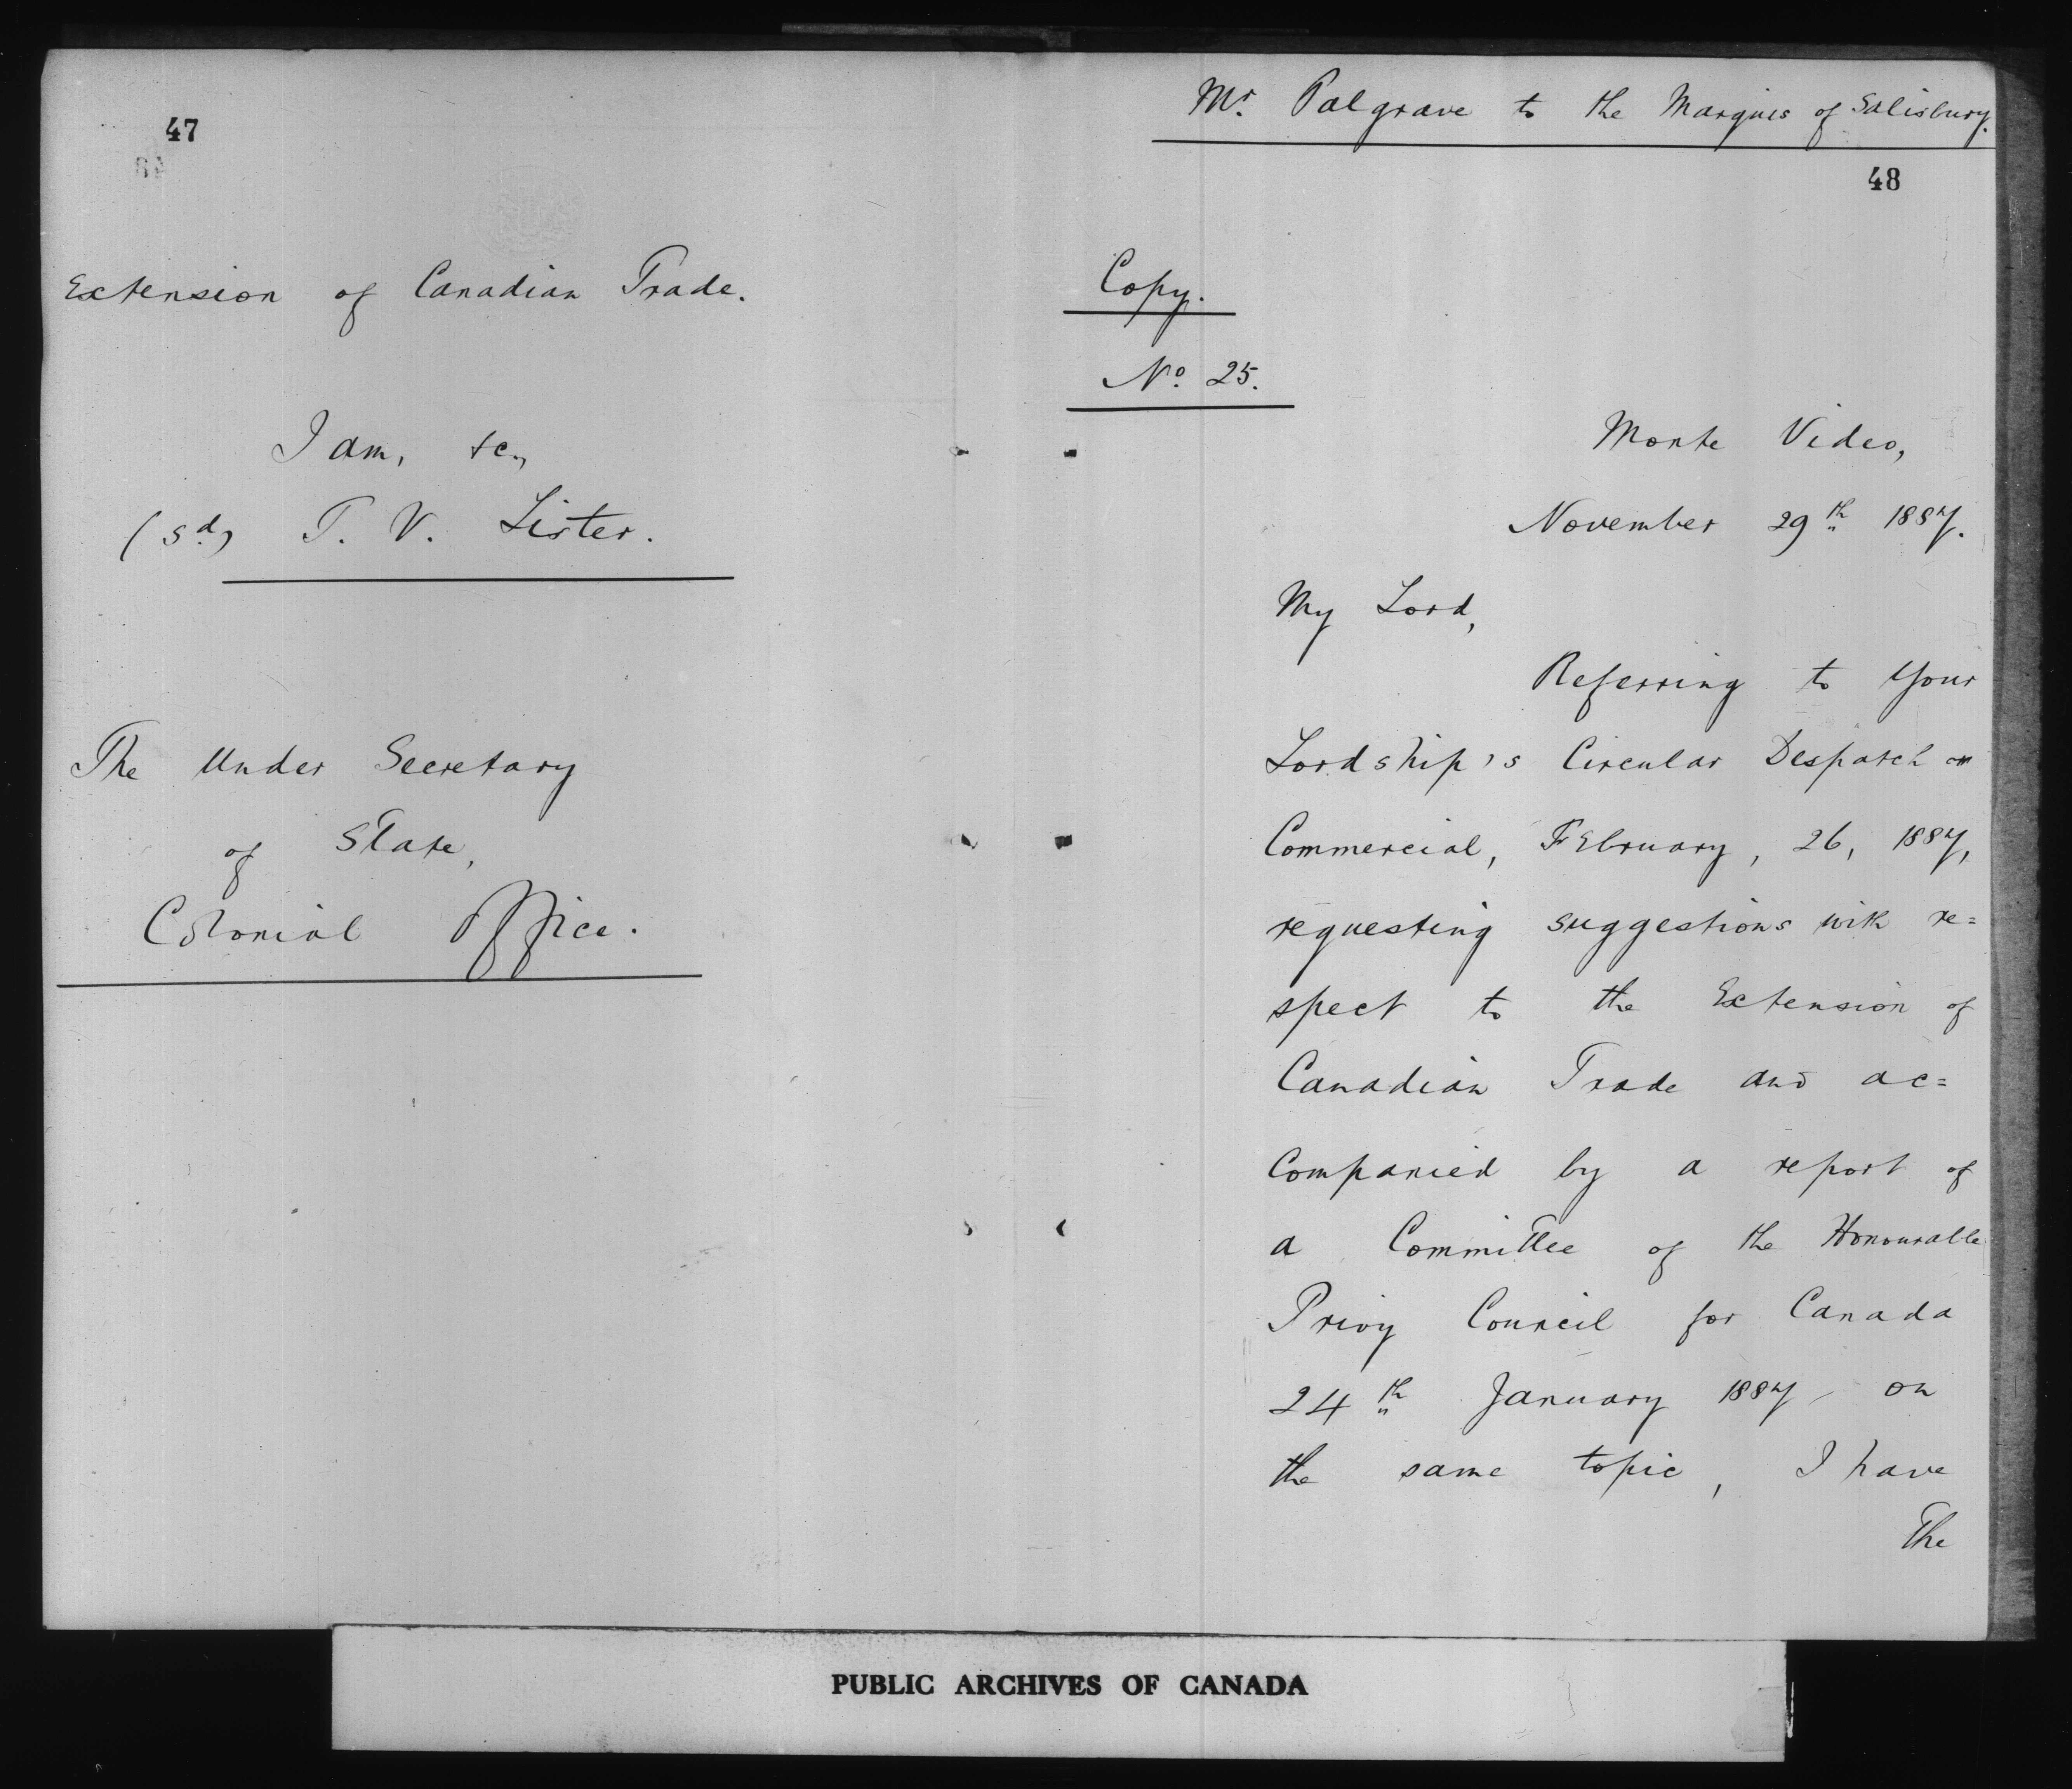 47
Extension of Canadian Trade.
I am, &c.,
(sd) T. V. Lister.
The Under Secretary
of State,
Colonial Office.
Mr. Palgrave to the Marquis of Salisbury.
48
Copy.
No. 25.
Monte Video,
November 29th 1887.
My Lord,
Referring to Your
Lordship's Circular Despatch on
Commercial, February, 26, 1887,
requesting suggestions with re=
spect to the Extension of
Canadian Trade and ac=
companied by a report of
a Committee of the Honourable
Privy Council for Canada
24th January 1887 on
the same topic, I have
The
PUBLIC ARCHIVES OF CANADA